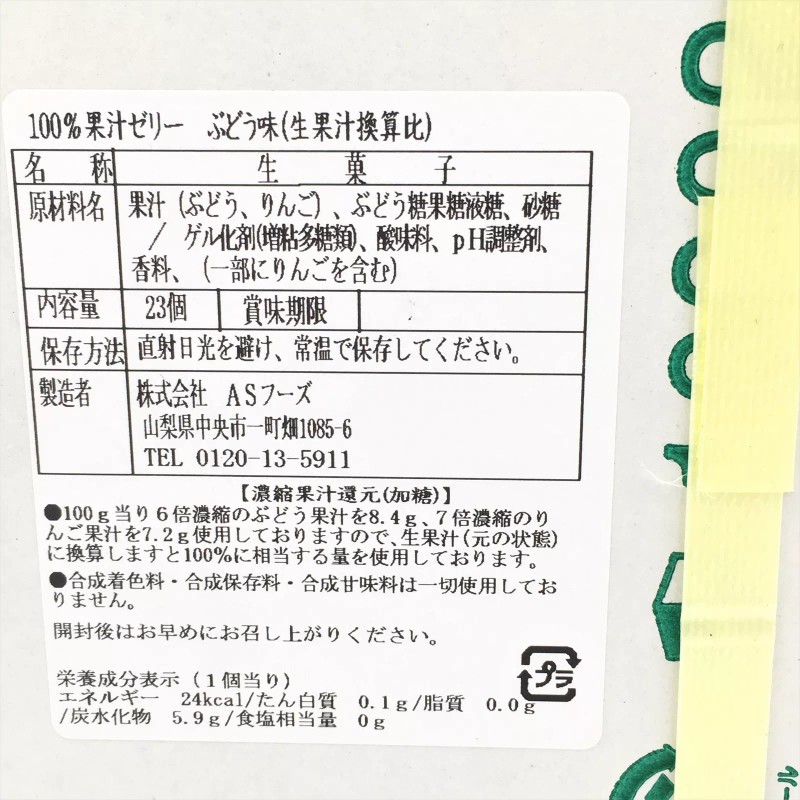 100%果汁ゼリー　ぶどう味(生果汁換算比)
名　称　生　菓　子
原材料名　果汁（ぶどう、りんご）、ぶどう糖果糖液糖、砂糖
／　ゲル化剤(増粘多糖類)、酸味料、ｐＨ調整剤、
香料、（一部にりんごを含む）
内容量　23個　賞味期限
保存方法　直射日光を避け、常温で保存してください。
製造者　株式会社　ＡＳフーズ
山梨県中央市一町畑1085-6
TEL 0120-13-5911
【濃縮果汁還元(加糖)】
●100ｇ当り６倍濃縮のぶどう果汁を8.4ｇ、７倍濃縮のり
んご果汁を7.2ｇ使用しておりますので、生果汁(元の状態)
に換算しますと100%に相当する量を使用しております。
●合成着色料・合成保存料・合成甘味料は一切使用してお
りません。
開封後はお早めにお召し上がりください。
プラ
栄養成分表示（１個当り）
エネルギー　24kcal/たん白質　0.1ｇ/脂質　0.0ｇ
/炭水化物　5.9ｇ/食塩相当量　0ｇ